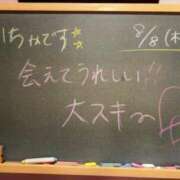 ちゃんです☆☆
8/8(木
会えてうれしい!!
大スキ